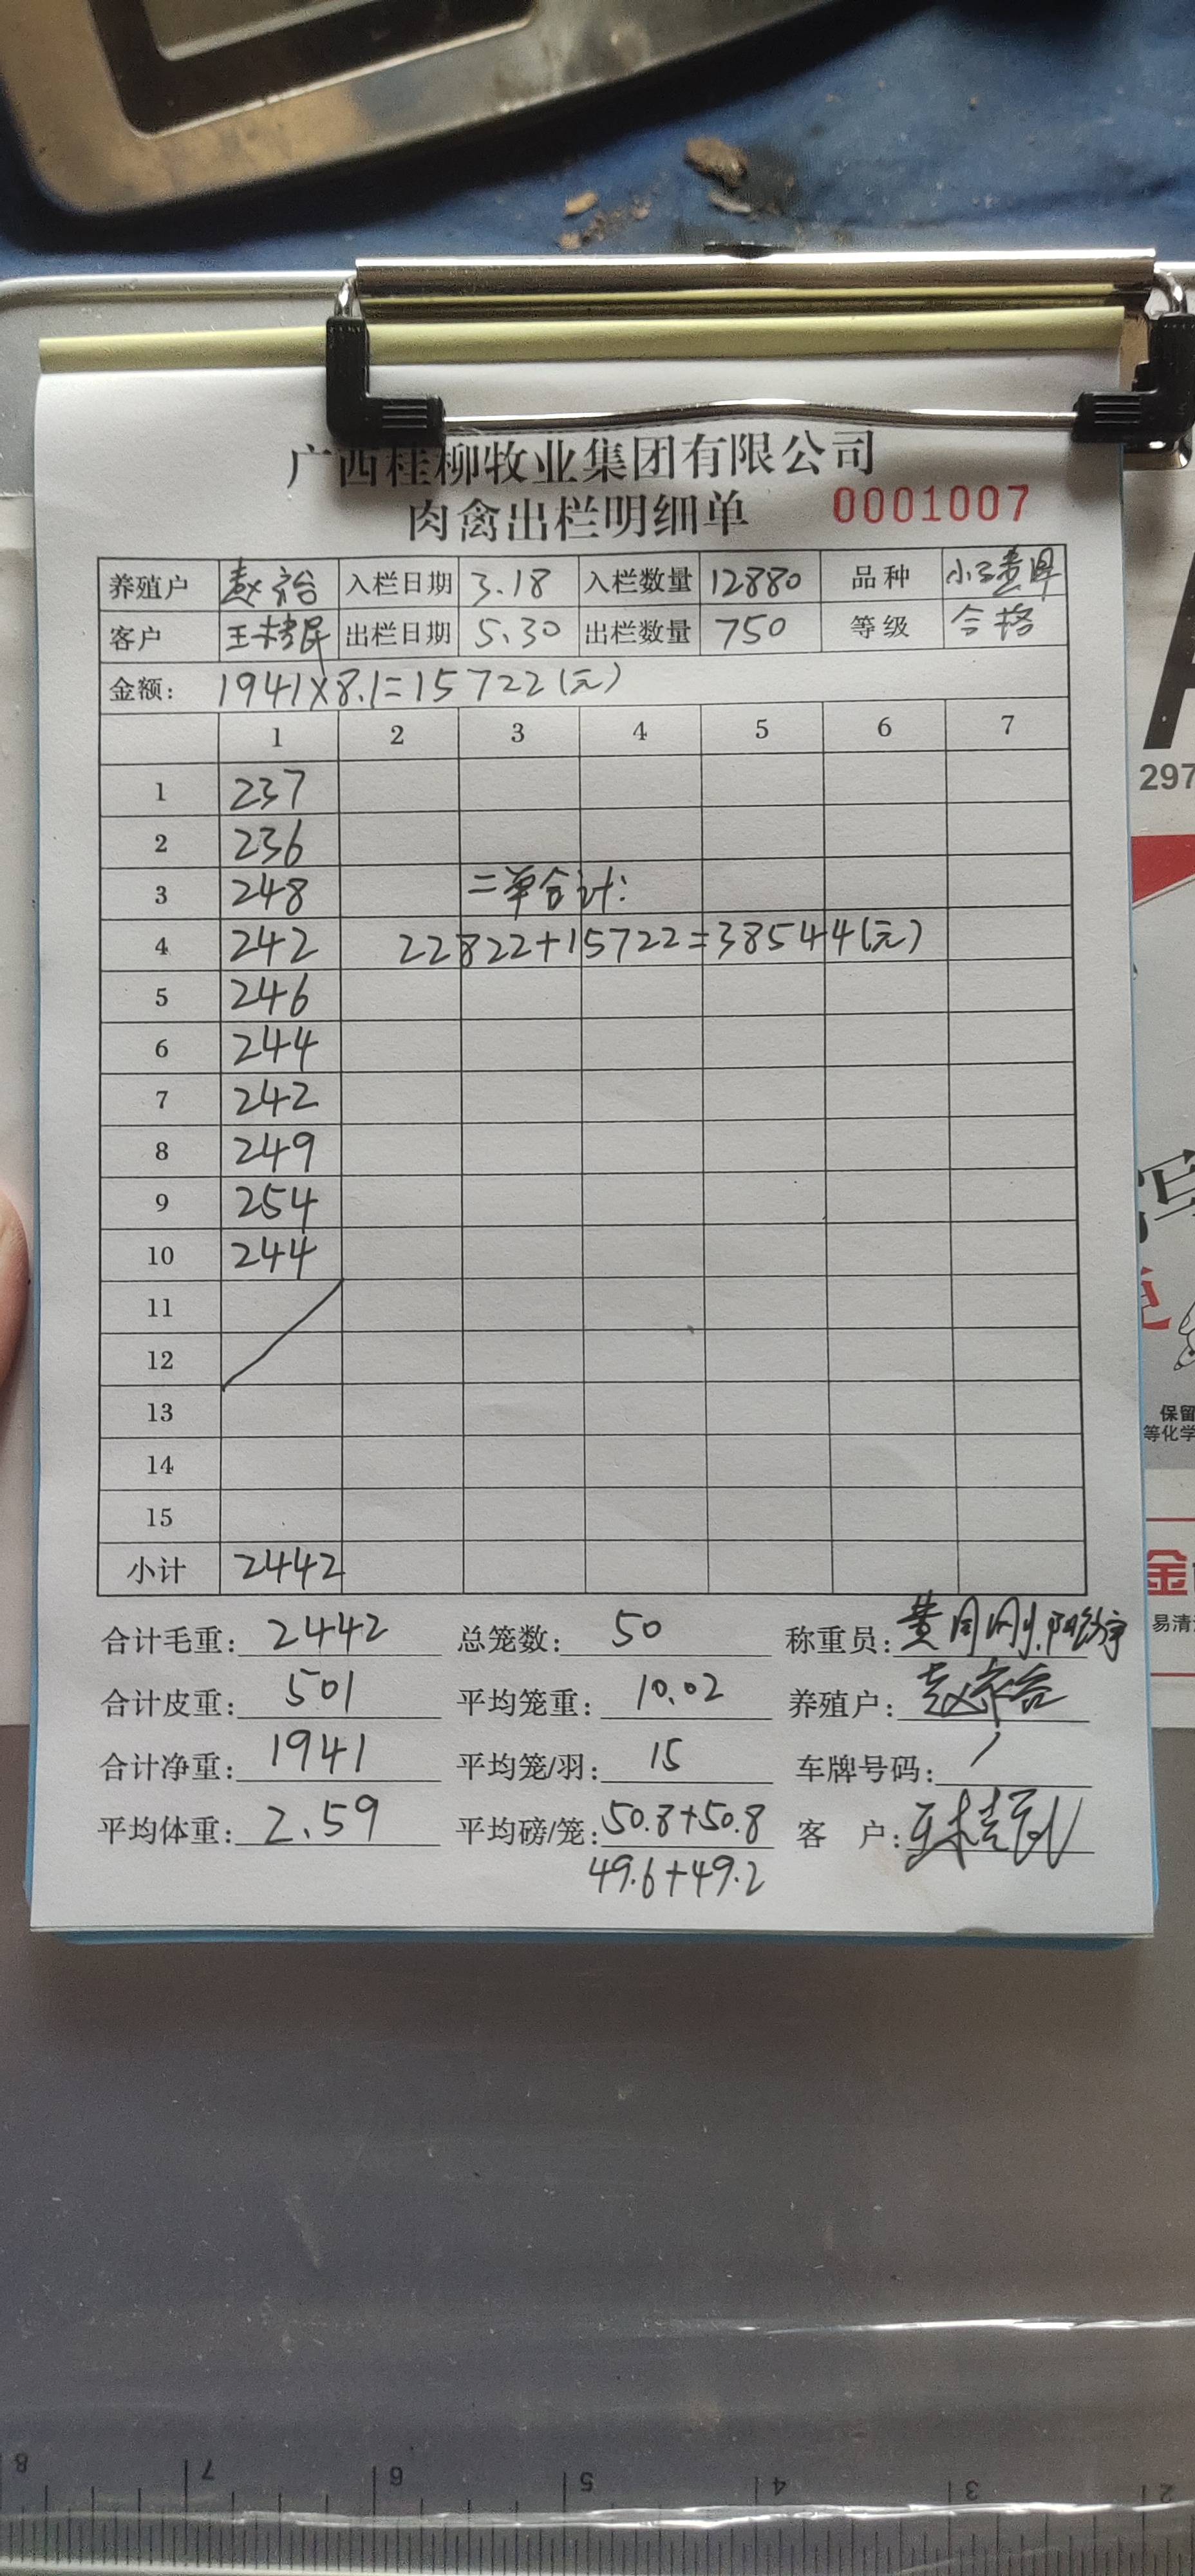 广西桂柳牧业集团有限公司
肉禽出栏明细单 0001007
养殖户 入栏日期 3.18 入栏数量 12880 品种
客户 出栏日期 5.30 出栏数量 750 等级 合格
金额: 1941×8.1=15722(元)
1 2 3 4 5 6 7
1 237
2 236
3 248 二单合计:
4 242 22822+15722=38544(元)
5 246
6 244
7 242
8 249
9 254
10 244
11
12
13
14
15
小计 2442
合计毛重: 2442 总笼数: 50 称重员:
合计皮重: 501 平均笼重: 10.02 养殖户:
合计净重: 1941 平均笼/羽: 15 车牌号码: /
平均体重: 2.59 平均磅/笼: 50.8+50.8 客 户:
49.6+49.2
297
保留
等化学
金
易清
8 7 6 5 4 3 2